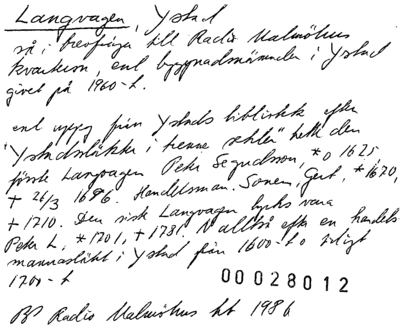 Langvagen, Ystad
så i brevfråga till Radio Malmöhus
kvarteren, enl byggnadsnämnden i Ystad
givet på 1960-t.
enl uppg från Ystads bibliotek efter
"Ystadssläkter i trenne sekler" hette den
förste Langvagen Peter Segudsson, *o 1625,
+ 26/3 1696. Handelsman. Sonen, Gert, *1670,
+ 1710. Den siste Langvagen tycks vara
Peter L, *1701, +1781. Alltså efter en handels
mannasläkt i Ystad från 1600-t o tidigt
1700-t
00028012
Radio Malmöhus 1986